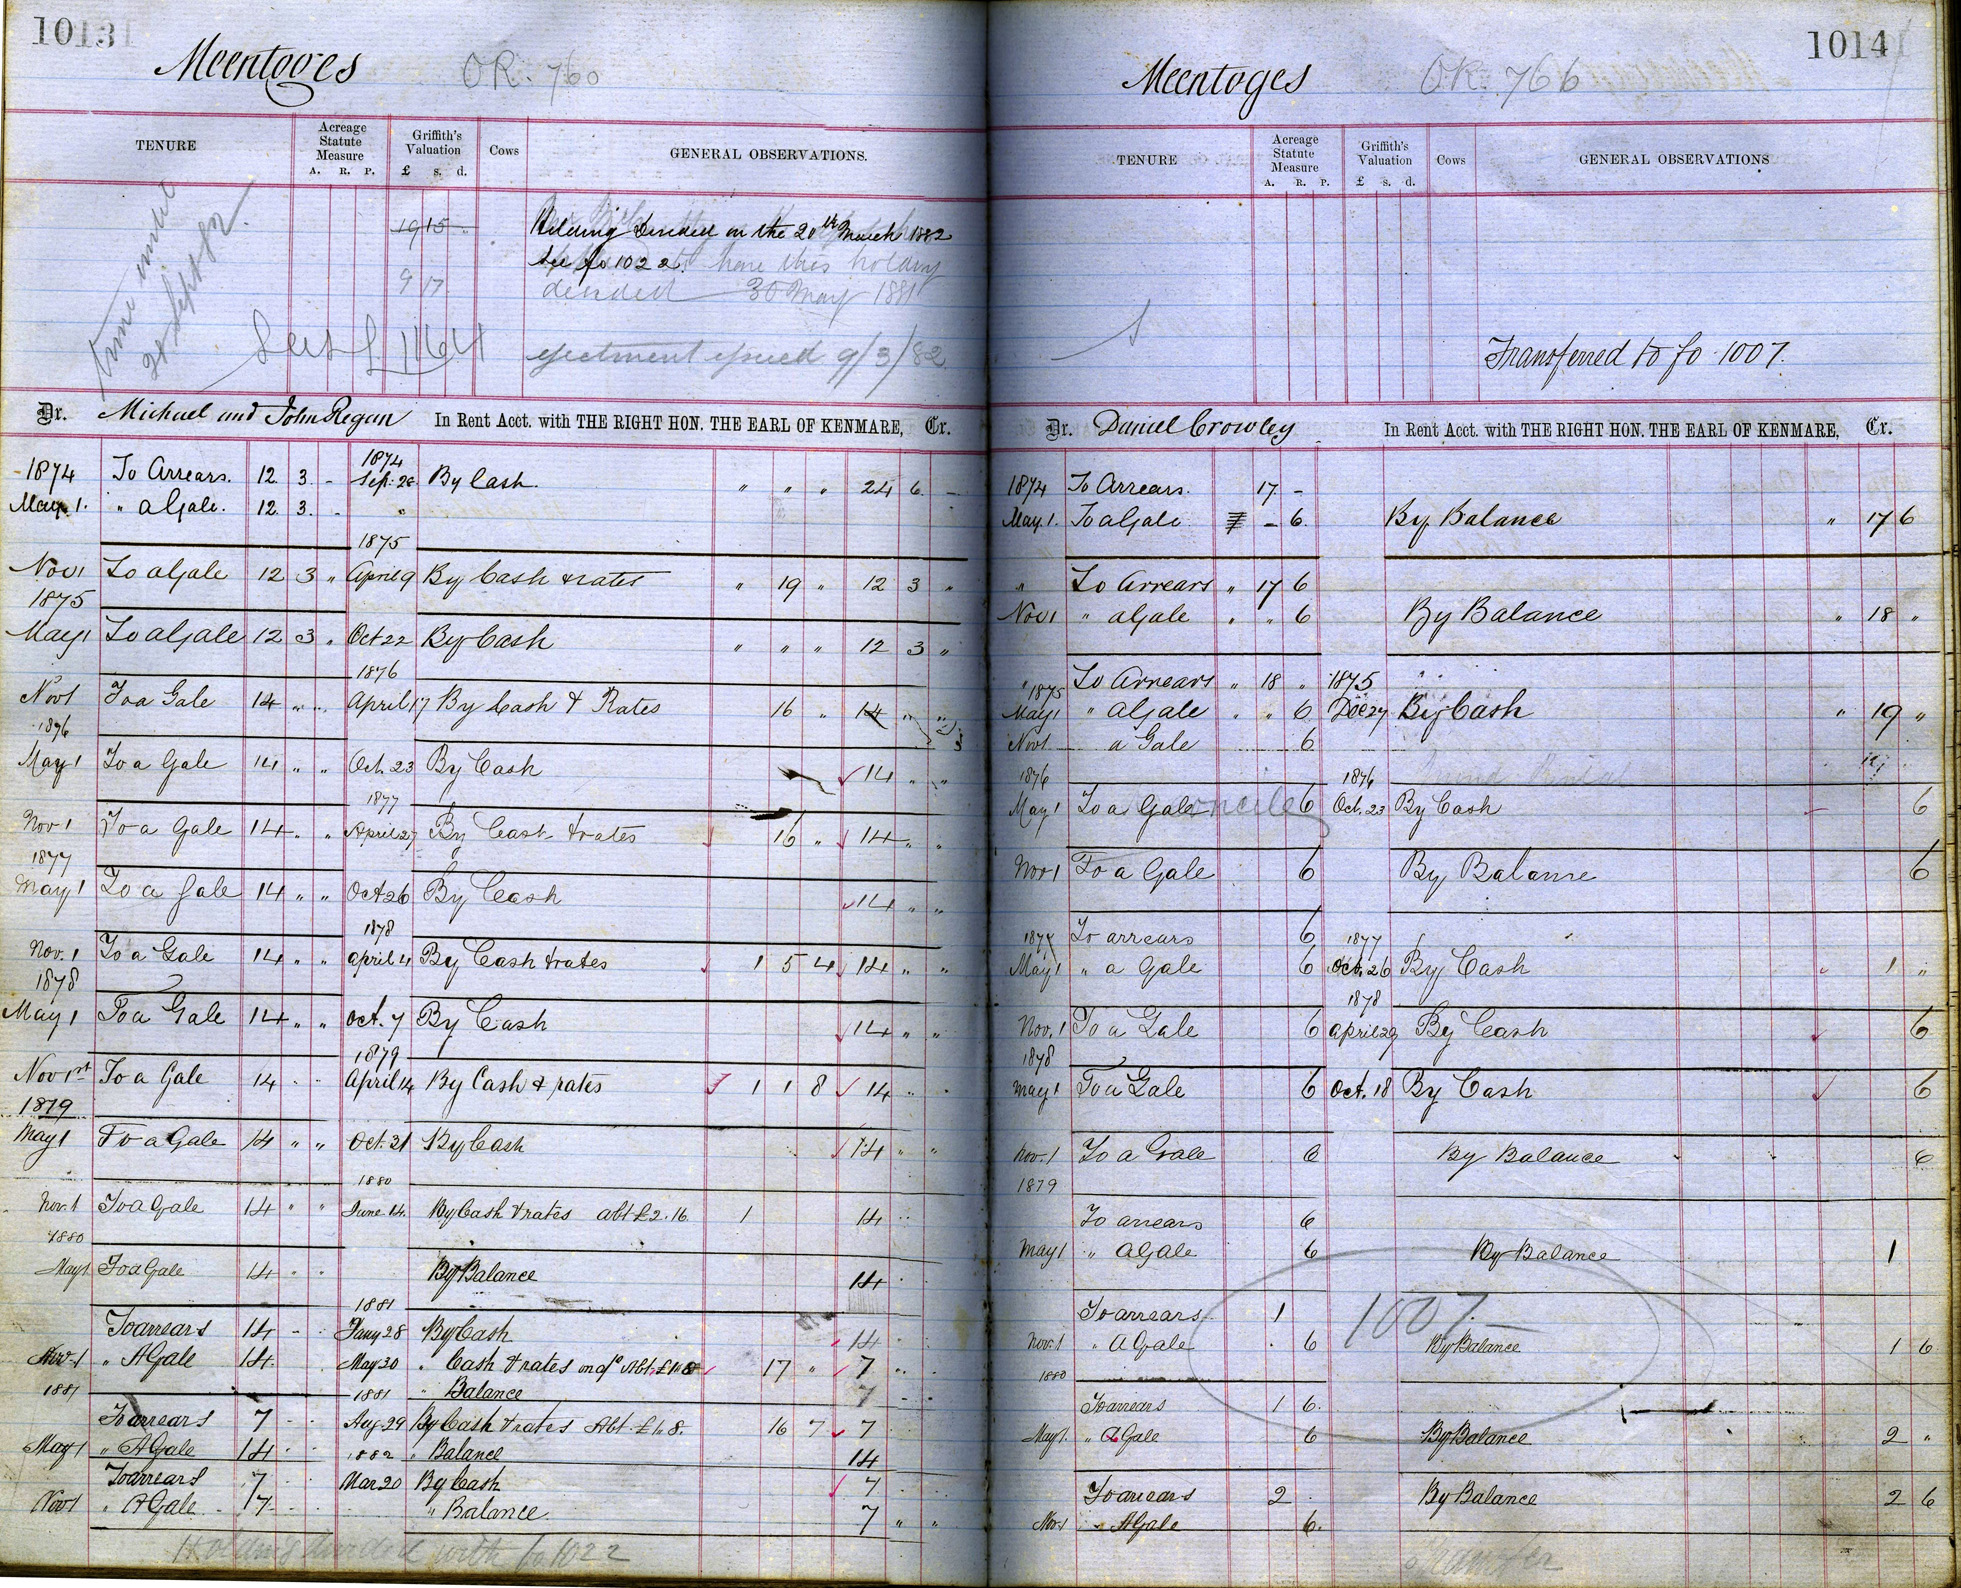 1013
Meentoges OR. 760
TENURE Acreage Statute Measure A. R. P. Griffith's Valuation £ s. d. Cows GENERAL OBSERVATIONS.
19 15 Holding Divided on the 20th March 1882
See fo 1022. have this holding
9 17 divided 30 May 1881
28 Sept 82
1164 ejectment issued 9/3/82
Dr. Michael and John Regan In Rent Acct. with THE RIGHT HON. THE EARL OF KENMARE, Cr.
1874 To Arrears. 12 3 - 1874 Sep. 28 By Cash. " " " 24 6 -
May 1. " a Gale. 12 3 -
1875
Nov 1 To a Gale 12 3 " April 9 By Cash & rates " 19 " 12 3 "
1875
May 1 To a Gale 12 3 " Oct 22 By Cash " " " 12 3 "
1876
Nov 1 To a Gale 14 " " April 17 By Cash & Rates 16 " 14 " "
1876
May 1 To a Gale 14 " " Oct. 23 By Cash 14 " "
1877
Nov 1 To a Gale 14 " " April 27 By Cash & rates 16 " 14 " "
1877
May 1 To a Gale 14 " " Oct 26 By Cash 14 " "
1878
Nov. 1 To a Gale 14 " " April 4 By Cash & rates 1 5 4 14 " "
1878
May 1 To a Gale 14 " " Oct. 7 By Cash 14 " "
1879
Nov 1st To a Gale 14 " " April 14 By Cash & rates 1 1 8 14 " "
1879
May 1 To a Gale 14 " " Oct. 31 By Cash 14 " "
1880
Nov. 1 To a Gale 14 " " June 14. By Cash & rates abt £2.16. 1 14 " "
1880
May 1 To a Gale 14 " " By Balance 14
1881
To arrears 14 - Jany 28 By Cash 14
Nov. 1 " A Gale 14. May 30 " Cash & rates on a/c Abt. 17 " 7 " "
1881 1881 " Balance 7
To arrears 7 Aug 29 By Cash & rates Abt. 16 7 7
May 1 " A Gale 14 1882 " Balance 14
To arrears 7 Mar 20 By Cash 7
Nov 1 " A Gale 7 " Balance 7 " "
Holding divided with fo 1022
1014
Meentoges OR. 766
TENURE Acreage Statute Measure A. R. P. Griffith's Valuation £ s. d. Cows GENERAL OBSERVATIONS
Transferred to fo. 1007.
Dr. Daniel Crowley In Rent Acct. with THE RIGHT HON. THE EARL OF KENMARE, Cr.
1874 To Arrears. 17 -
May. 1. To a Gale - 6. By Balance " 17 6
" To Arrears " 17 6
Nov 1 " a Gale " " 6 By Balance " 18 "
" To Arrears " 18 " 1875
1875 May 1 " a Gale " " 6 Dec 27 By Cash " 19 "
Nov 1 a Gale 6
1876 1876
May 1 To a Gale 6 Oct. 23 By Cash 6
Nov 1 To a Gale 6 By Balance 6
1877 To arrears 6 1877
May 1 " a Gale 6 Oct. 26 By Cash 1 "
1878
Nov. 1 To a Gale 6 April 29 By Cash 6
1878
May 1 To a Gale 6 Oct. 18 By Cash 6
Nov. 1 To a Gale 6 By Balance 6
1879
To arrears 6
May 1 " A Gale 6 By Balance 1
To arrears 1 1007
Nov. 1 " A Gale 6 By Balance 1 6
1880
To arrears 1 6.
May 1 " A Gale 6 By Balance 2 "
To arrears 2 By Balance 2 6
Nov. 1 " A Gale 6.
Transfer